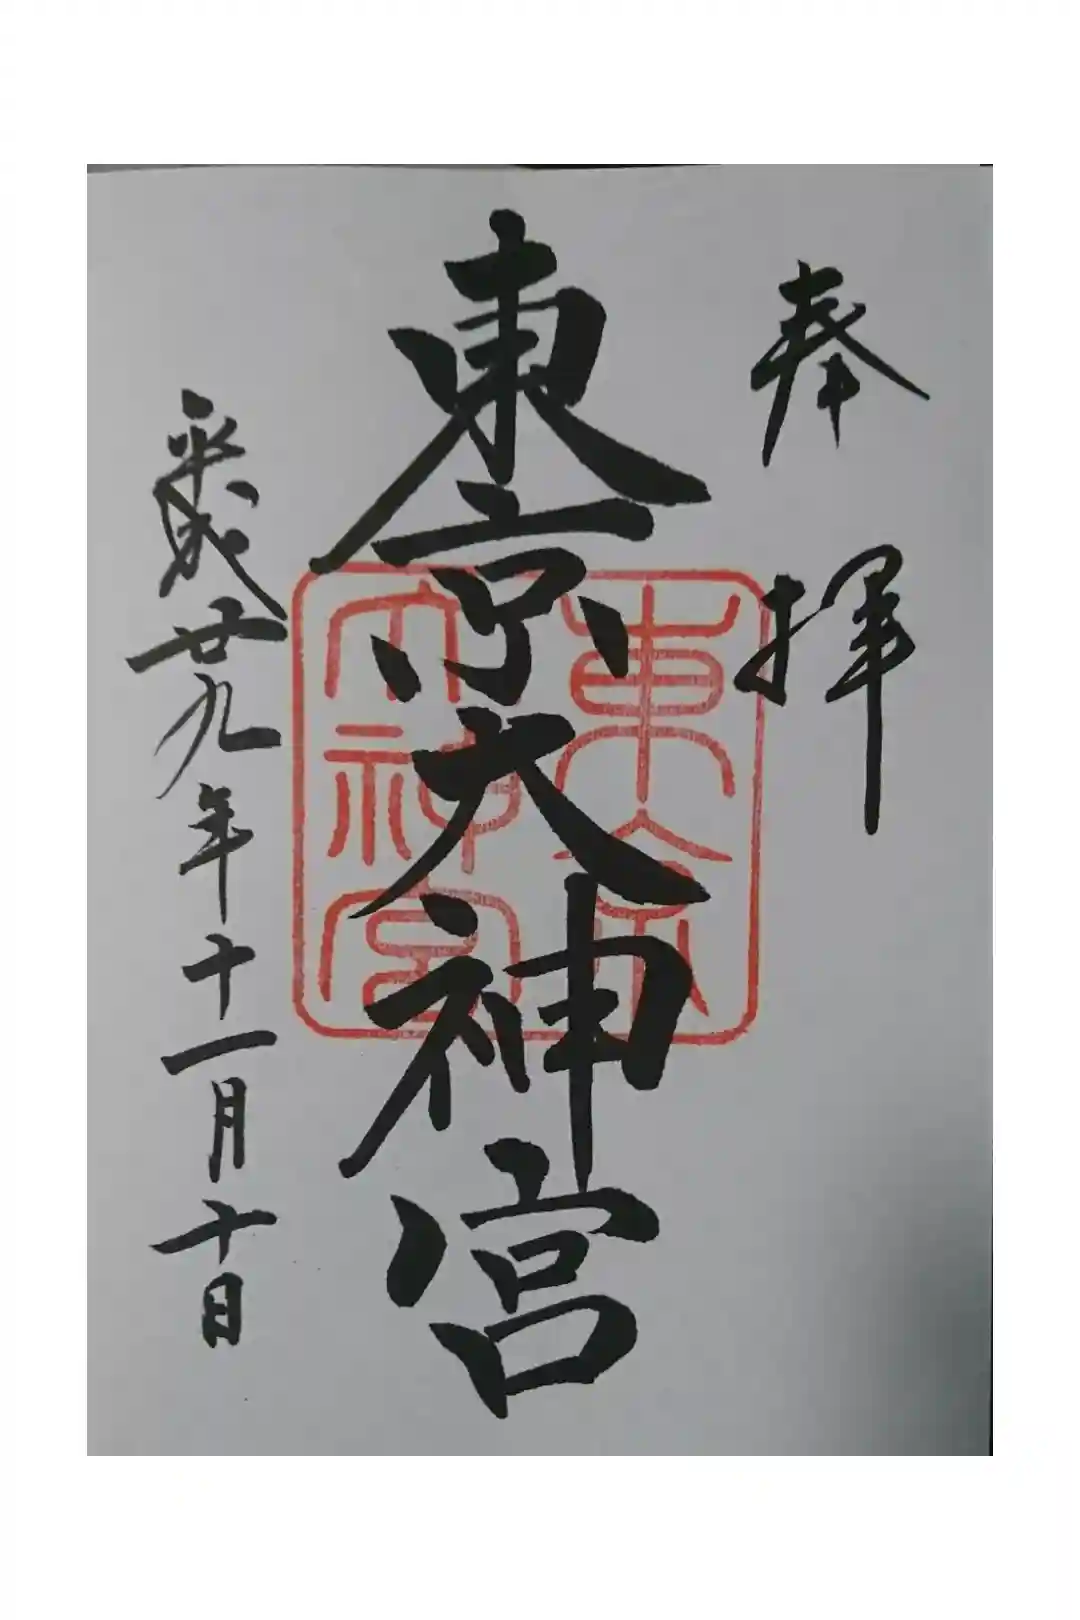 奉拝
東京大神宮
東京
大神宮
平成廿九年十一月十日